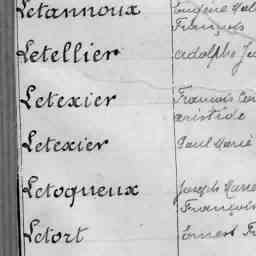 Letannoux Eugène
François
Letellier Adolphe
Letexier François
Aristide
Letexier Paul Marie
Letoqueux Joseph Marie
François
Letort Ernest